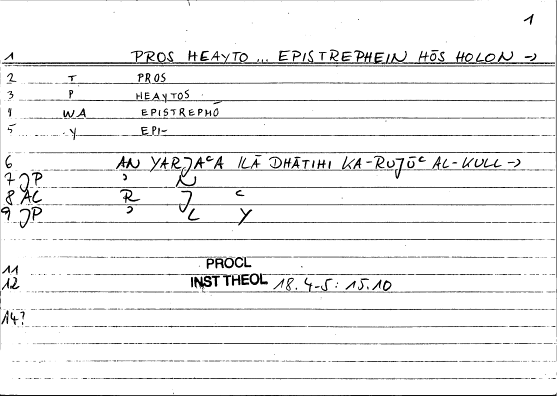 1
1 PROS HEAYTO ... EPISTREPHEIN HŌS HOLON →
2 T PROS
3 P HEAYTOS
4 WA EPISTREPHŌ
5 Y EPI-
6 AN YARJAᶜA ILĀ DHĀTIHI KA-RUJŪᶜ AL-KULL →
7 JP ʾ N
8 AL R J ᶜ
9 JP ʾ L Y
11 PROCL
12 INST THEOL 18.4-5: 15.10
14?